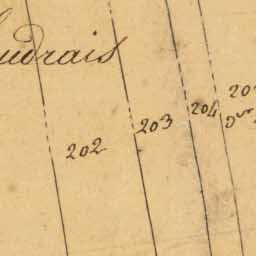 udrais
202
203
204
20